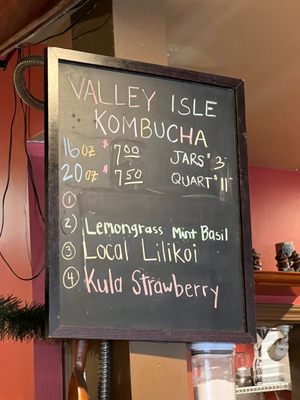 VALLEY ISLE
KOMBUCHA
16oz $7.00 JARS $3
20oz $7.50 QUART $11
1
2 Lemongrass Mint Basil
3 Local Lilikoi
4 Kula Strawberry